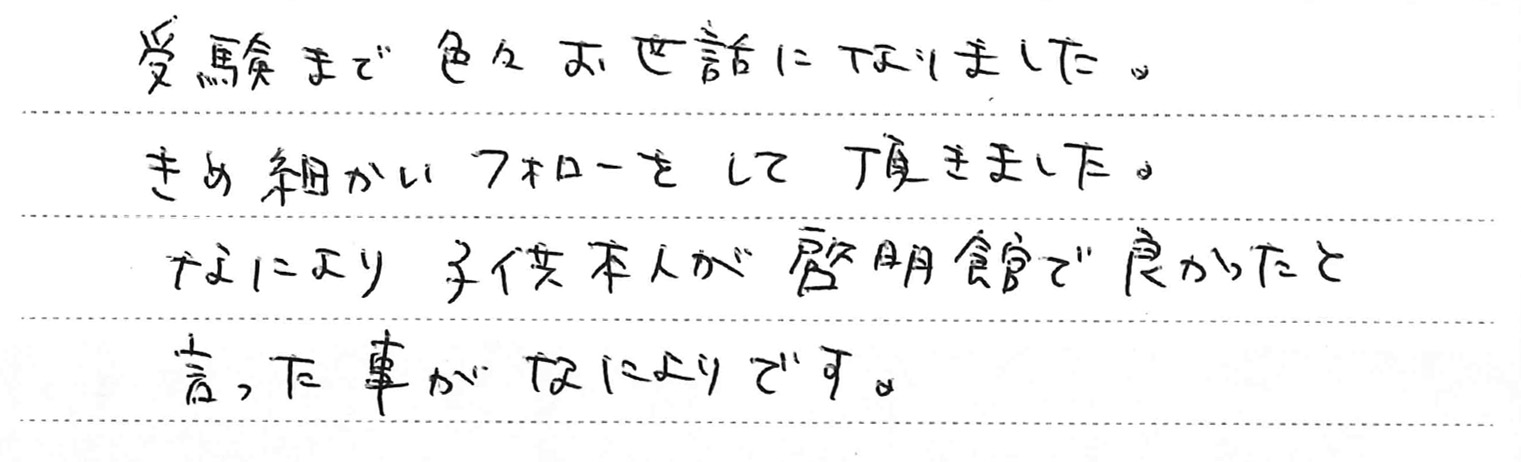 受験まで色々お世話になりました。
きめ細かいフォローをして頂きました。
なにより子供本人が啓明館で良かったと
言った事がなによりです。